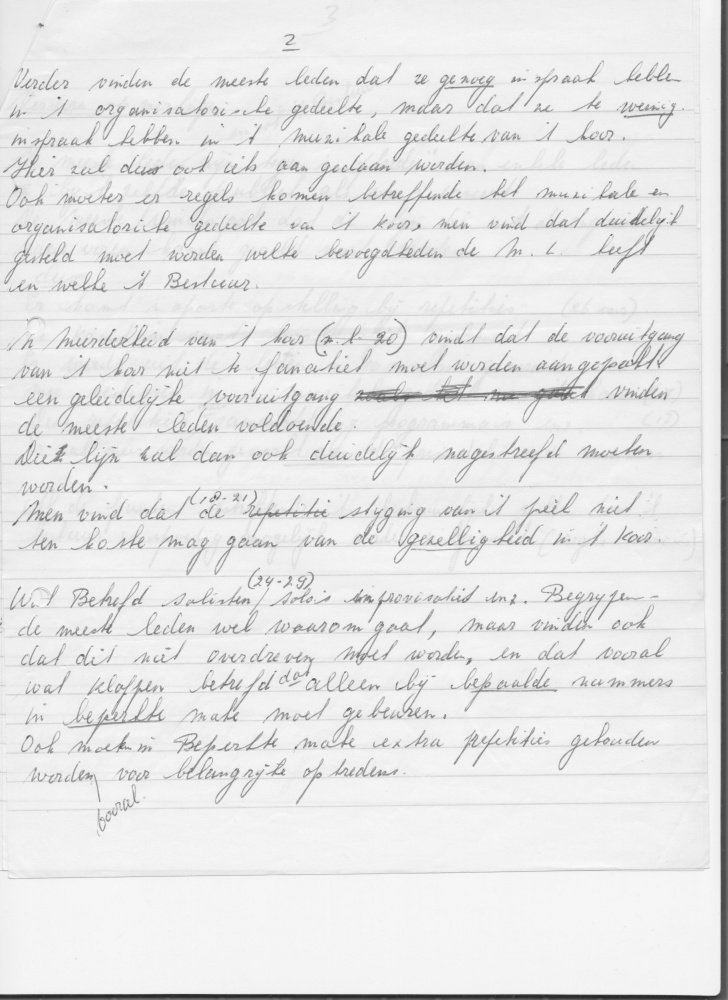 2
Verder vinden de meeste leden dat ze genoeg inspraak hebben
in 't organisatorische gedeelte, maar dat ze te weinig
inspraak hebben in 't muzikale gedeelte van 't koor.
Hier zal dus ook iets aan gedaan worden.
Ook moeten er regels komen betreffende het muzikale en
organisatorische gedeelte van 't koor, men vind dat duidelijk
gesteld moet worden welke bevoegdheden de M. L. heeft
en welke 't Bestuur.
'n Meerderheid van 't koor (n.l. 20) vindt dat de vooruitgang
van 't koor niet te fanatiek moet worden aangepakt.
een geleidelijke vooruitgang vinden
de meeste leden voldoende.
Die lijn zal dan ook duidelijk nagestreefd moeten
worden.
Men vind dat (18-21) de repetitie styging van 't peil niet
ten koste mag gaan van de gezelligheid in 't koor.
Wat Betrefd solisten, (24-29) solo's improvisaties enz. Begrypen
de meeste leden wel waarom gaat, maar vinden ook
dat dit niet overdreven moet worden, en dat vooral
wat klappen betrefd dat alleen by bepaalde nummers
in beperkte mate moet gebeuren.
Ook moeten in Beperkte mate extra repetities gehouden
worden vooral voor belangryke optredens.